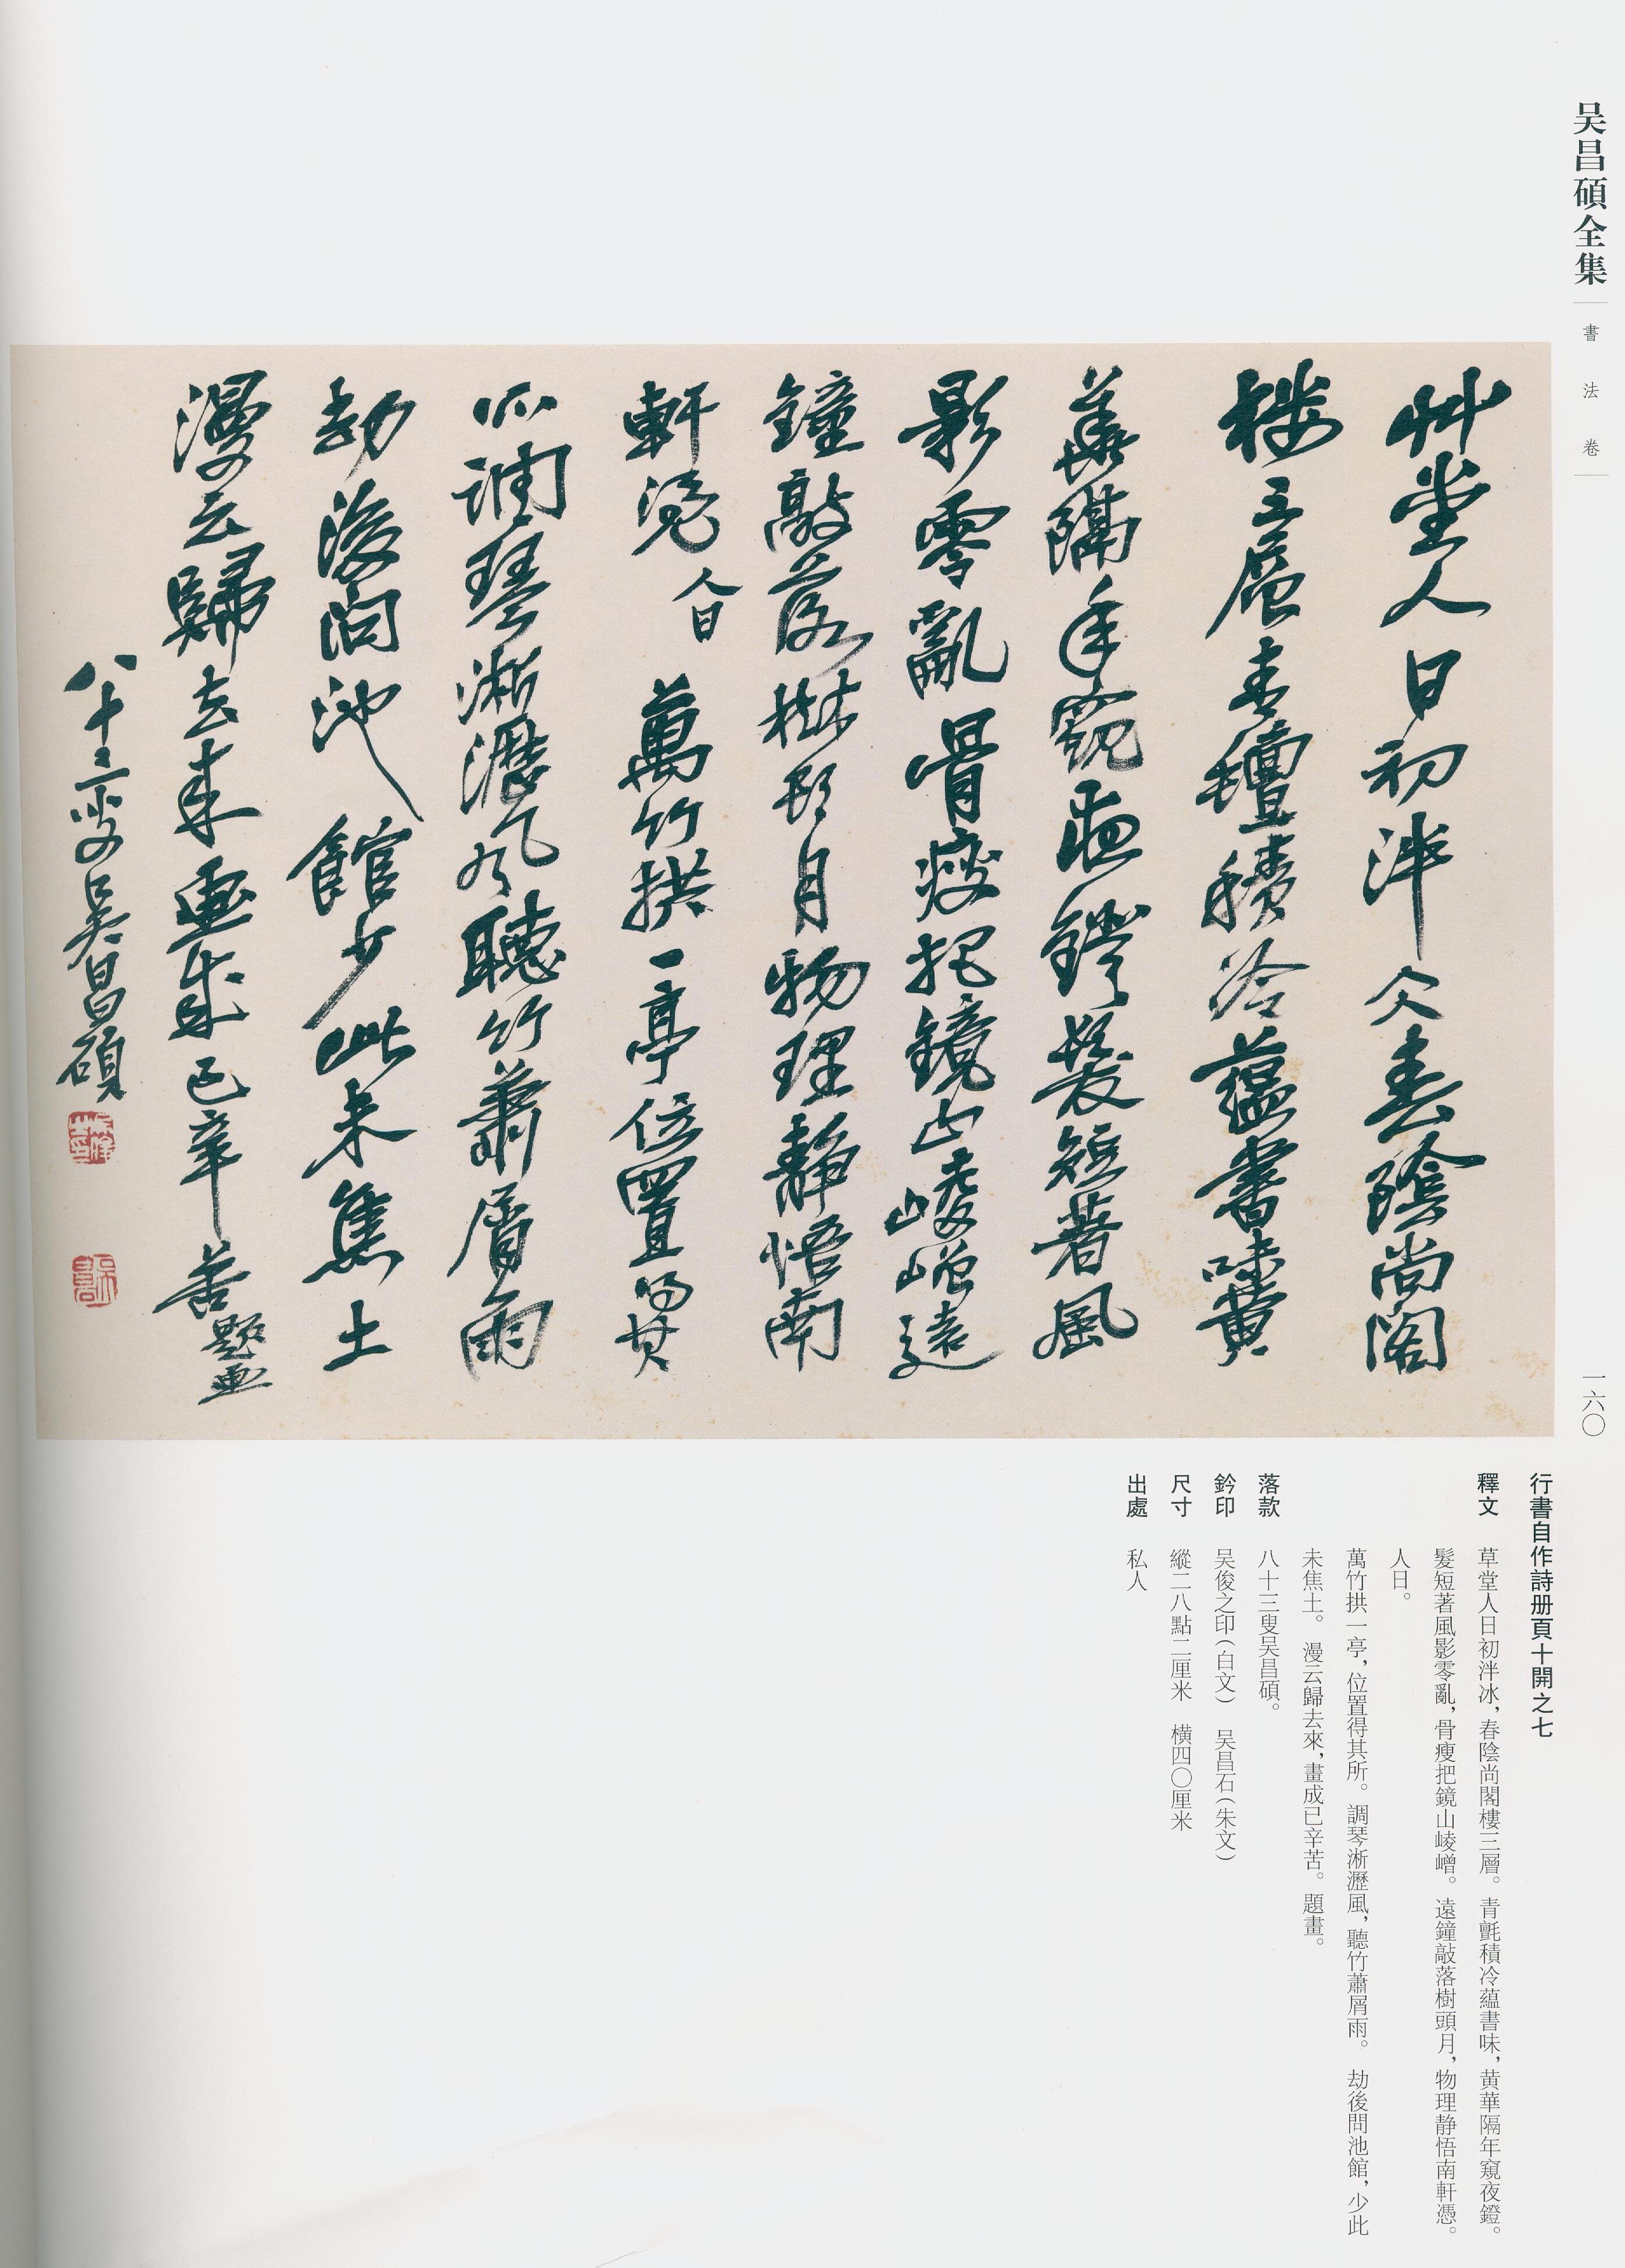 吴昌碩全集
書法卷
一六〇
艸堂人日初泮仌春陰尚閣
楼三層青氊積冷蘊書味黄
華隔年窺夜鐙髮短著風
影零亂骨瘦把鏡山崚嶒遠
鐘敲落樹頭月物理静悟南
軒凭 人日 萬竹拱一亭位置得其
所調琴淅瀝風聽竹蕭屑雨
劫後問池館少此未焦土
漫云歸去來畫成已辛苦 題畫
八十三叟吴昌碩
行書自作詩册頁十開之七
釋文 草堂人日初泮冰，春陰尚閣樓三層。青氈積冷蘊書味，黄華隔年窺夜鐙。
髮短著風影零亂，骨瘦把鏡山崚嶒。遠鐘敲落樹頭月，物理静悟南軒憑。
人日。
萬竹拱一亭，位置得其所。調琴淅瀝風，聽竹蕭屑雨。劫後問池館，少此
未焦土。漫云歸去來，畫成已辛苦。題畫。
落款 八十三叟吴昌碩。
鈐印 吴俊之印（白文） 吴昌石（朱文）
尺寸 縱二八點二厘米 横四〇厘米
出處 私人